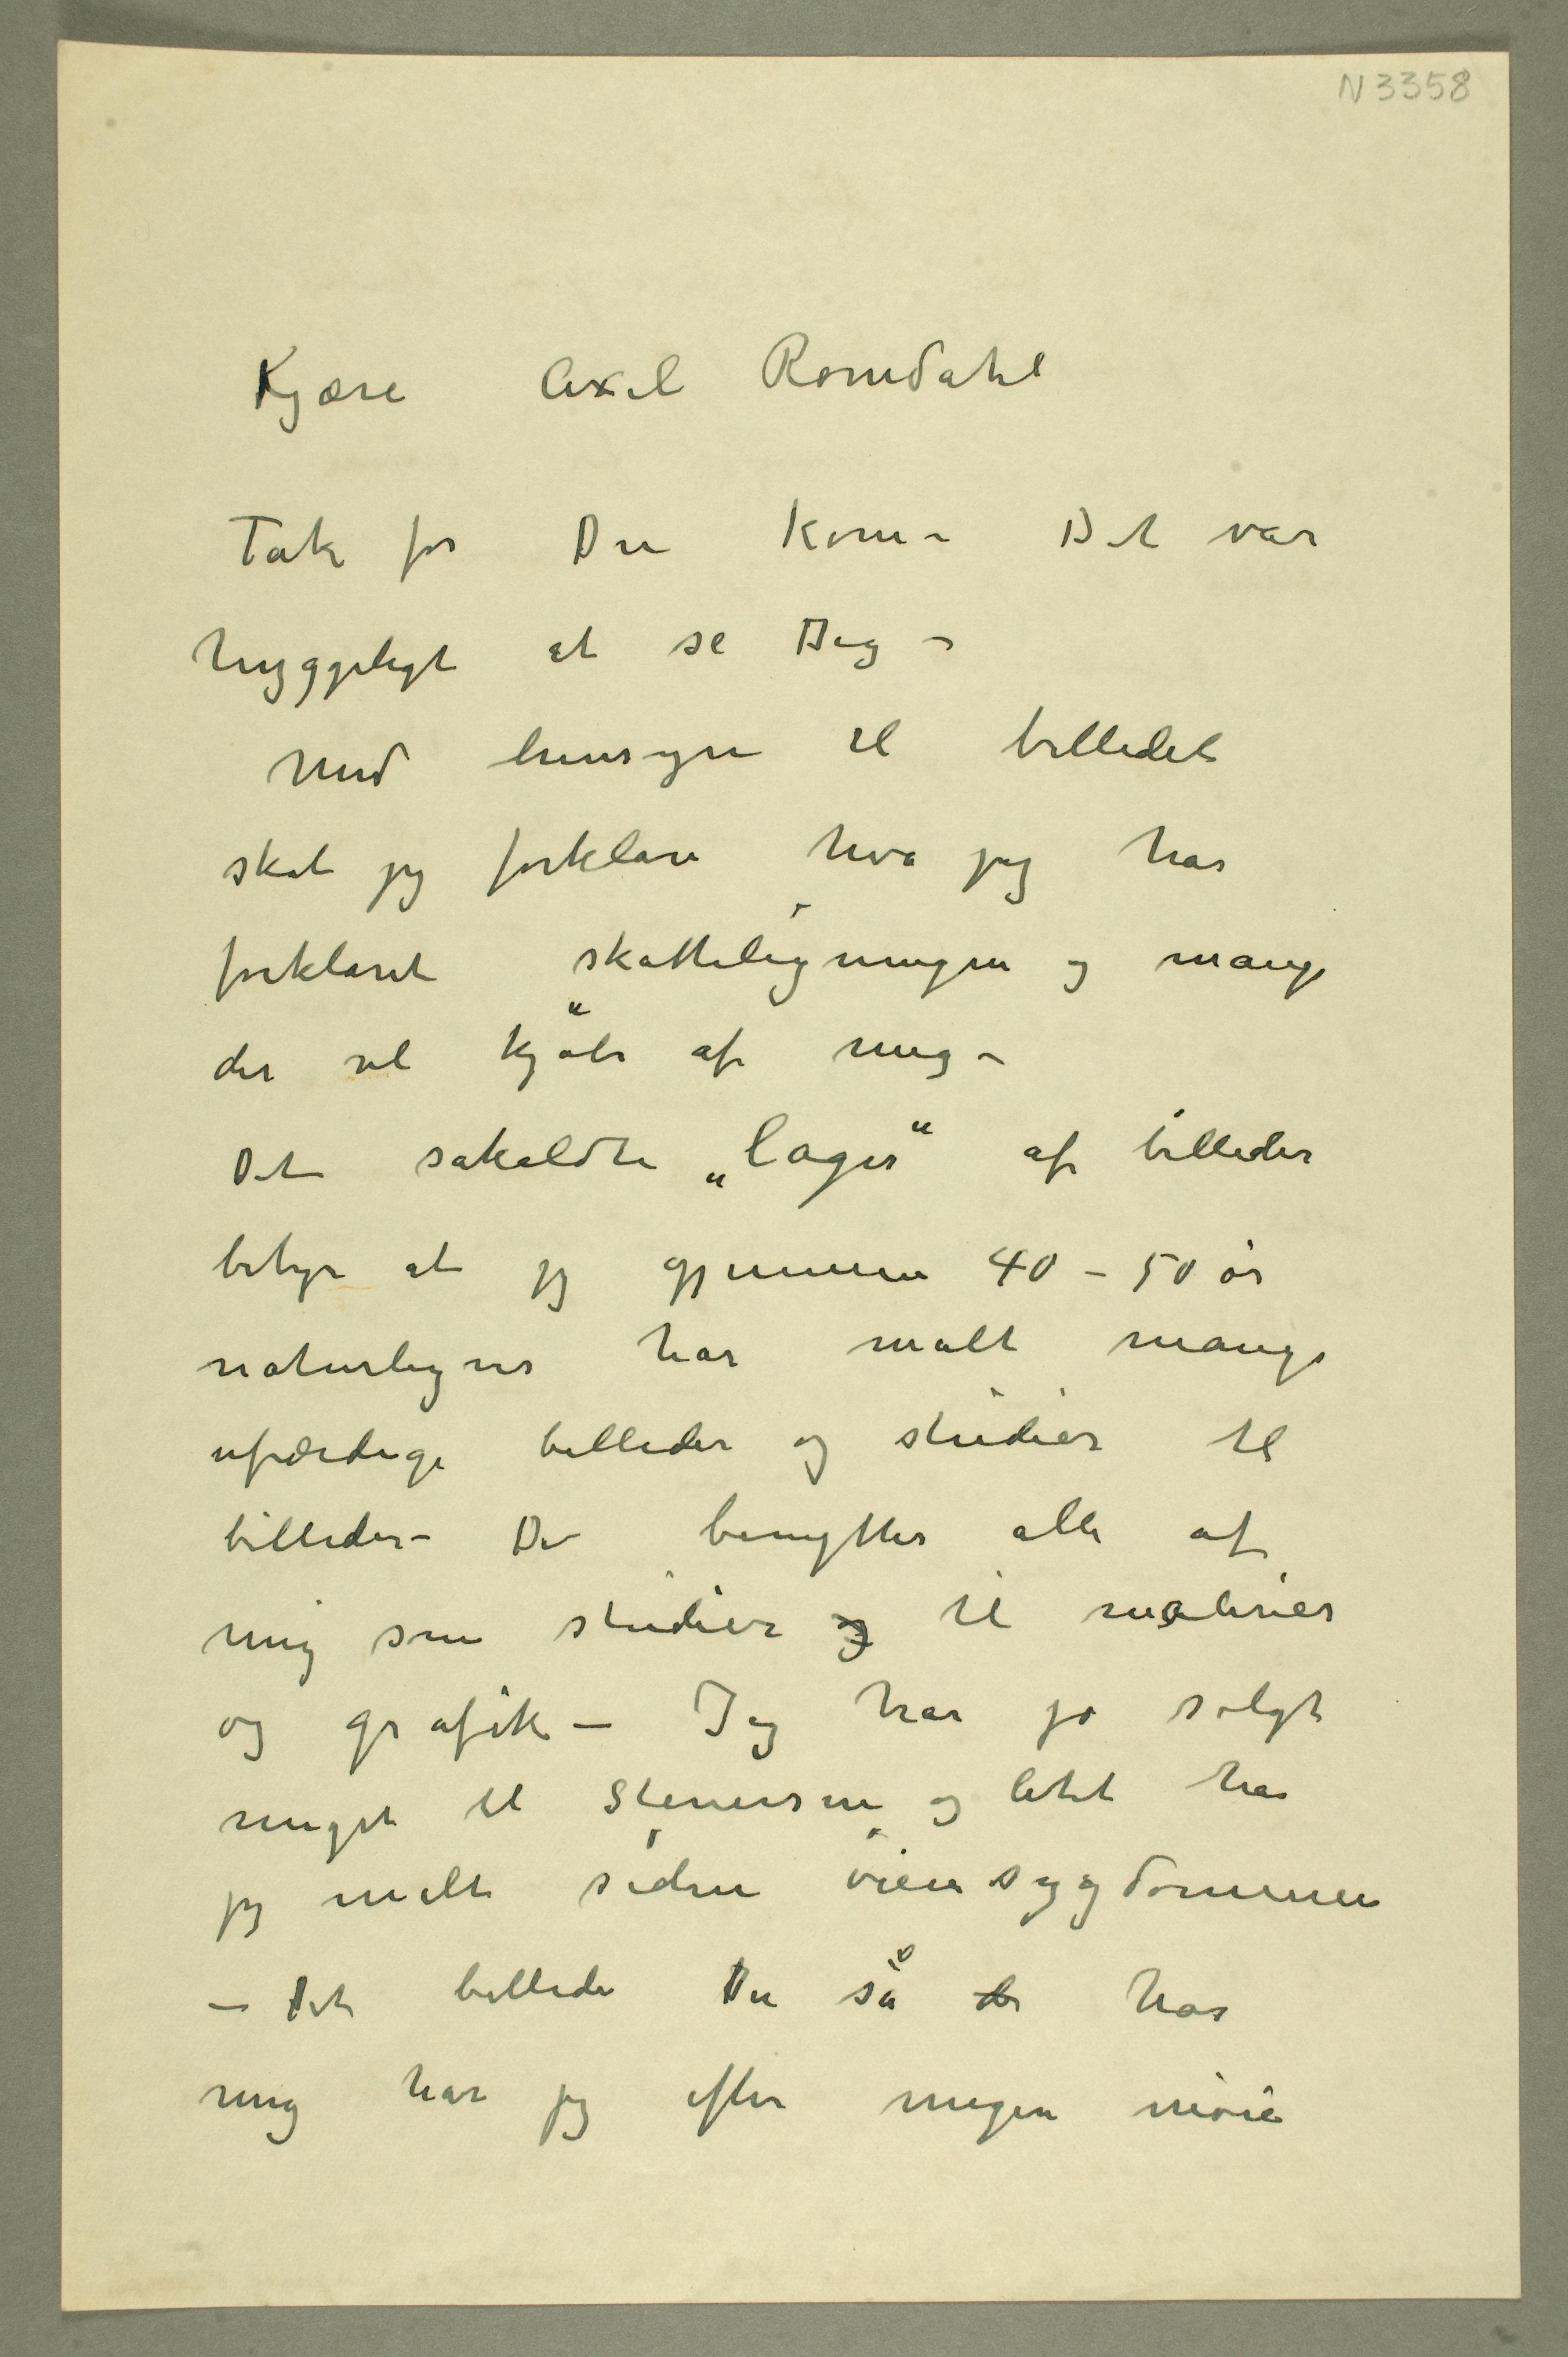 N 3358
Kjære Axel Romdahl
Tak for Du kom – Det var
hyggeligt at se Dig –
Med hensyn til billedet
skal jeg forklare hva jeg har
forklaret skatteligningen og mange
der vil kjøbe af mig –
Det såkaldte „lager“ af billeder
betyr at jeg gjennem 40 – 50 år
naturligvis har malt mange
ufærdige billeder og studier til
billeder – De benyttes alle af
mig som studier og til malerier
og grafik – Jeg har jo solgt
meget til Stenersen og litet har
jeg malt siden øiensygdommen
– Det billede Du så der hos
mig har jeg efter megen møie